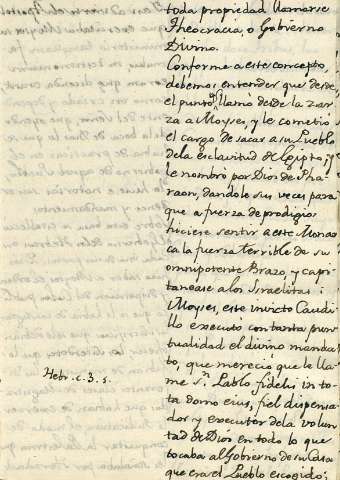 toda propiedad llamarse
Theocracia, o Gobierno
Divino.
Conforme a este concepto,
debemos entender que desde
el punto q.e llamó desde la zar
za a Moyses, y le cometió
el cargo de sacar a su Pueblo
dela esclavitud de Egipto, y
le nombró por Dios de Pha
raon, dandole sus veces para
que a fuerza de prodigios
hiciese sentir a este Monar
ca la fuerza terrible de su
omnipotente Brazo, y capi
tanease a los Israelitas:
Moyses, este invicto Caudi
llo executó contanta pun
tualidad el divino manda
to, que mereció que le lla
me S.n Pablo fidelis in to
ta domo eius, fiel dispensa
dor y executor dela volun
tad de Dios en todo lo que
tocaba al Gobierno de su Casa
que era el Pueblo escogido;
Hebr. c. 3. 5.